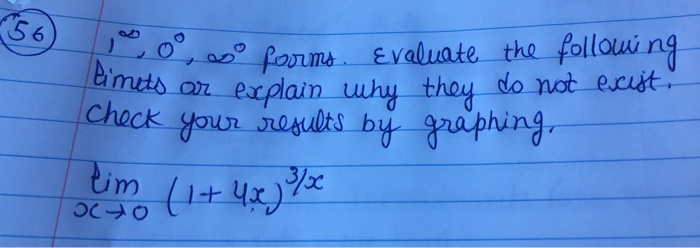 56
1^∞, 0^0, ∞^0 forms. Evaluate the following
limets or explain why they do not exist.
check your results by graphing.
lim x→0 (1+4x)^3/x